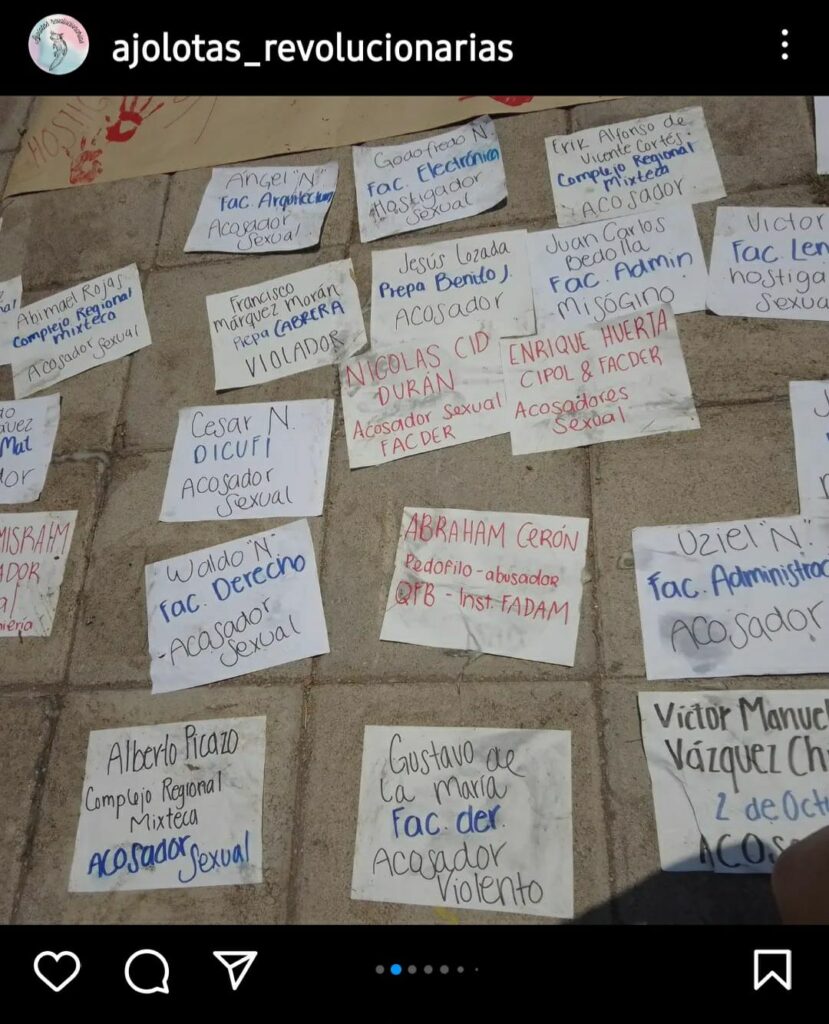 ajolotas_revolucionarias
HOSTIG
Angel "N"
Fac. Arquitectura
Acosador
Sexual.
Godofredo N"
Fac. Electrónica
Hostigador
Sexual
Erik Alfonso de
Vicente Cortés.
Complejo Regional
Mixteca
ACOSADOR
Abimael Rojas
Complejo Regional
Mixteca
Acosador Sexual
Francisco
Márquez Morán
Prepa CABRERA
VIOLADOR
Jesús Lozada
Prepa Benito J.
ACOSADOR
Juan Carlos
Bedolla
Fac. Admin
Misógino
Victor
Fac. Len
hostiga
Sexua
NICOLAS CID
DURÁN
Acosador Sexual
FACDER
ENRIQUE HUERTA
CIPOL & FACDER
Acosadores
Sexual
Mat
dor
Cesar N.
DICUFI
Acosador
Sexual
MISRAIM
ADOR
al
niería
Waldo "N"
Fac. Derecho
-Acosador
Sexual
ABRAHAM CERÓN
Pedofilo-abusador
QFB - Inst. FADAM
Uziel "N".
Fac. Administrac
Acosador
Alberto Picazo
Complejo Regional
Mixteca
ACOSADOR Sexual
Gustavo de
la maría
Fac. der.
Acosador
Violento
Victor Manuel
Vázquez Ch
2 de Oct
ACOS